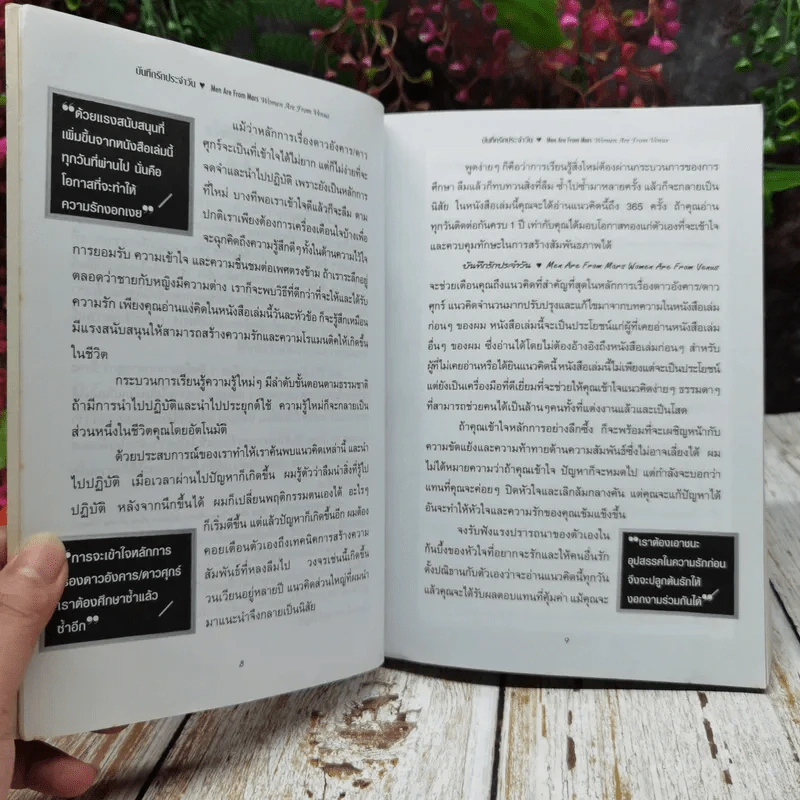 บันทึกรักประจำวัน ♥ Men Are From Mars Women Are From Venus
❝ด้วยแรงสนับสนุนที่
เพิ่มขึ้นจากหนังสือเล่มนี้
ทุกวันที่ผ่านไป นั่นคือ
โอกาสที่จะทำให้
ความรักงอกเงย❞
แม้ว่าหลักการเรื่องดาวอังคาร/ดาว
ศุกร์จะเป็นที่เข้าใจได้ไม่ยาก แต่ก็ไม่ง่ายที่จะ
จดจำและนำไปปฏิบัติ เพราะยังเป็นหลักการ
ที่ใหม่ บางทีพอเราเข้าใจดีแล้วก็จะลืม ตาม
ปกติเราเพียงต้องการเครื่องเตือนใจบ้างเพื่อ
จะฉุกคิดถึงความรู้สึกดีๆทั้งในด้านความไว้ใจ
การยอมรับ ความเข้าใจ และความชื่นชมต่อเพศตรงข้าม ถ้าเราระลึกอยู่
ตลอดว่าชายกับหญิงมีความต่าง เราก็จะพบวิธีที่ดีกว่าที่จะให้และได้รับ
ความรัก เพียงคุณอ่านแง่คิดในหนังสือเล่มนี้วันละหัวข้อ ก็จะรู้สึกเหมือน
มีแรงสนับสนุนให้สามารถสร้างความรักและความโรแมนติคให้เกิดขึ้น
ในชีวิต
กระบวนการเรียนรู้ความรู้ใหม่ๆ มีลำดับขั้นตอนตามธรรมชาติ
ถ้ามีการนำไปปฏิบัติและนำไปประยุกต์ใช้ ความรู้ใหม่ก็จะกลายเป็น
ส่วนหนึ่งในชีวิตคุณโดยอัตโนมัติ
ด้วยประสบการณ์ของเราทำให้เราค้นพบแนวคิดเหล่านี้ และนำ
ไปปฏิบัติ เมื่อเวลาผ่านไปปัญหาก็เกิดขึ้น ผมรู้ตัวว่าลืมนำสิ่งที่รู้ไป
ปฏิบัติ หลังจากนึกขึ้นได้ ผมก็เปลี่ยนพฤติกรรมตนเองได้ อะไรๆ
ก็เริ่มดีขึ้น แต่แล้วปัญหาก็เกิดขึ้นอีก ผมต้อง
คอยเตือนตัวเองถึงเทคนิคการสร้างความ
สัมพันธ์ที่หลงลืมไป วงจรเช่นนี้เกิดขึ้น
วนเวียนอยู่หลายปี แนวคิดส่วนใหญ่ที่ผมนำ
มาแนะนำจึงกลายเป็นนิสัย
❝การจะเข้าใจหลักการ
เรื่องดาวอังคาร/ดาวศุกร์
เราต้องศึกษาซ้ำแล้ว
ซ้ำอีก❞
8
บันทึกรักประจำวัน ♥ Men Are From Mars Women Are From Venus
พูดง่ายๆ ก็คือว่าการเรียนรู้สิ่งใหม่ต้องผ่านกระบวนการของการ
ศึกษา ลืมแล้วก็ทบทวนสิ่งที่ลืม ซ้ำไปซ้ำมาหลายครั้ง แล้วก็จะกลายเป็น
นิสัย ในหนังสือเล่มนี้คุณจะได้อ่านแนวคิดนี้ถึง 365 ครั้ง ถ้าคุณอ่าน
ทุกวันติดต่อกันครบ 1 ปี เท่ากับคุณได้มอบโอกาสทองแก่ตัวเองที่จะเข้าใจ
และควบคุมทักษะในการสร้างสัมพันธภาพได้
บันทึกรักประจำวัน ♥ Men Are From Mars Women Are From Venus
จะช่วยเตือนคุณถึงแนวคิดที่สำคัญที่สุดในหลักการเรื่องดาวอังคาร/ดาว
ศุกร์ แนวคิดจำนวนมากปรับปรุงและแก้ไขมาจากบทความในหนังสือเล่ม
ก่อนๆ ของผม หนังสือเล่มนี้จะเป็นประโยชน์แก่ผู้ที่เคยอ่านหนังสือเล่ม
อื่นๆ ของผม ซึ่งอ่านได้โดยไม่ต้องอ้างอิงถึงหนังสือเล่มก่อนๆ สำหรับ
ผู้ที่ไม่เคยอ่านหรือได้ยินแนวคิดนี้ หนังสือเล่มนี้ไม่เพียงแต่จะเป็นประโยชน์
แต่ยังเป็นเครื่องมือที่ดีเยี่ยมที่จะช่วยให้คุณเข้าใจแนวคิดง่ายๆ ธรรมดาๆ
ที่สามารถช่วยคนได้เป็นล้านๆคนทั้งที่แต่งงานแล้วและเป็นโสด
ถ้าคุณเข้าใจหลักการอย่างลึกซึ้ง ก็จะพร้อมที่จะเผชิญหน้ากับ
ความขัดแย้งและความท้าทายด้านความสัมพันธ์ซึ่งไม่อาจเลี่ยงได้ ผม
ไม่ได้หมายความว่าถ้าคุณเข้าใจ ปัญหาก็จะหมดไป แต่กำลังจะบอกว่า
แทนที่คุณจะค่อยๆ ปิดหัวใจและเลิกล้มกลางคัน แต่คุณจะแก้ปัญหาได้
อันจะทำให้หัวใจและความรักของคุณเข้มแข็งขึ้น
จงรับฟังแรงปรารถนาของตัวเองใน
ก้นบึ้งของหัวใจที่อยากจะรักและให้คนอื่นรัก
ตั้งปณิธานกับตัวเองว่าจะอ่านแนวคิดนี้ทุกวัน
แล้วคุณจะได้รับผลตอบแทนที่คุ้มค่า แม้คุณจะ
❝เราต้องเอาชนะ
อุปสรรคในความรักก่อน
จึงจะปลูกต้นรักให้
งอกงามร่วมกันได้❞
๙